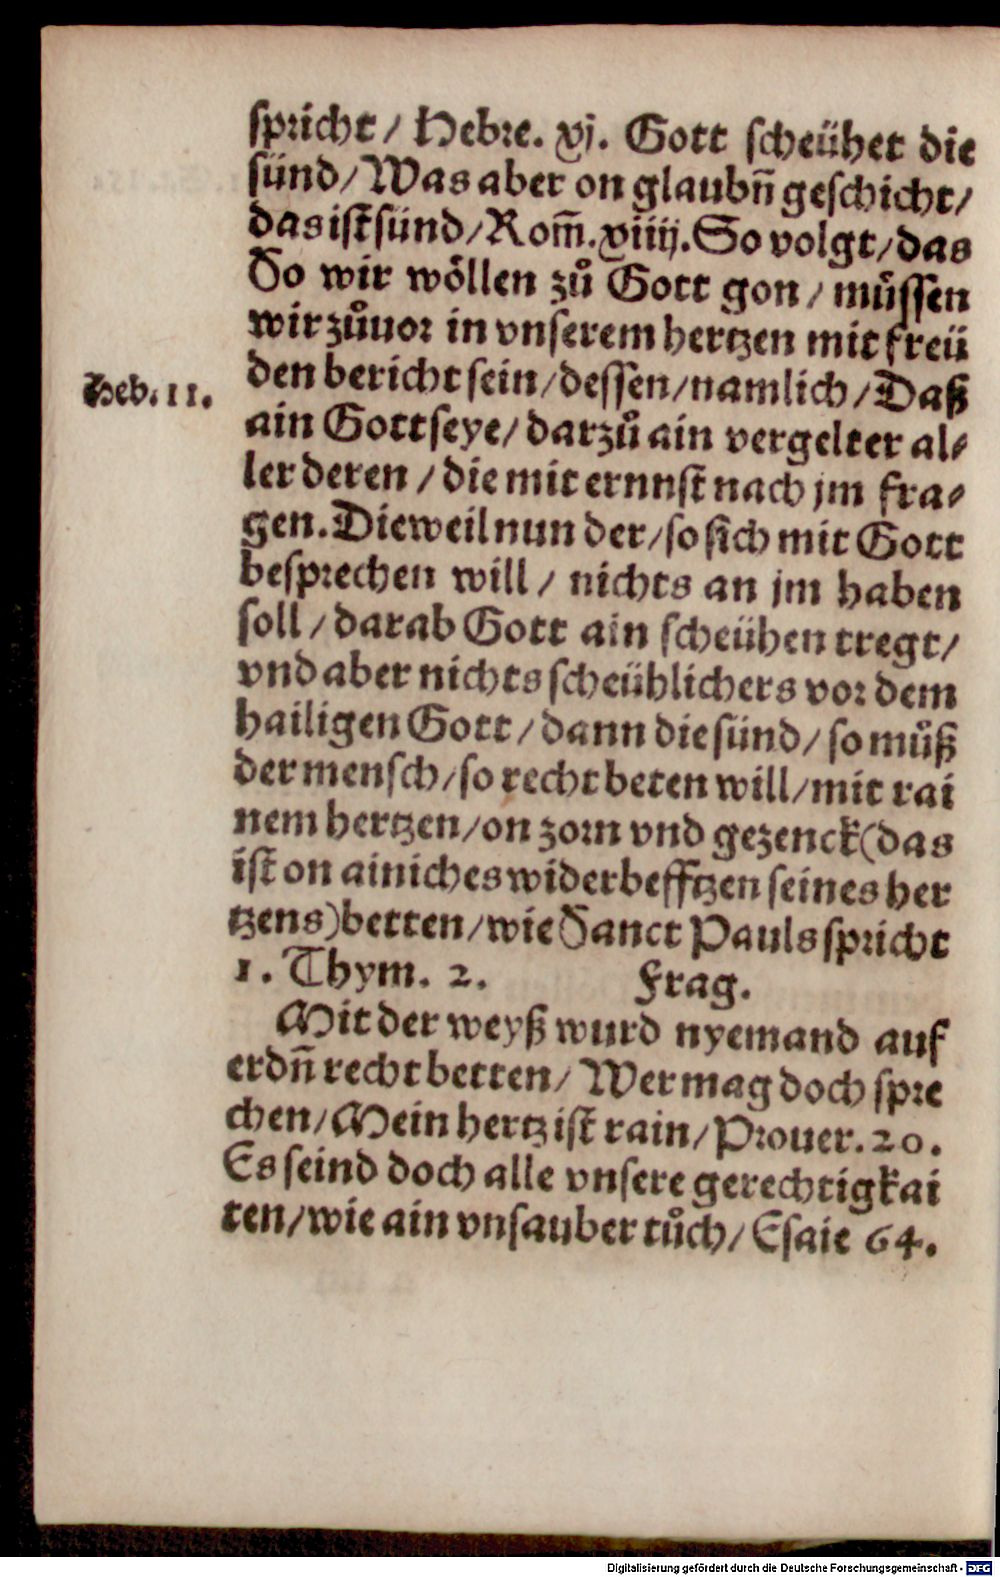 spricht / Hebre. xj. Gott scheühet die
sünd/ Was aber on glaubn̄ geschicht/
das ist sünd/ Rom̄. xiiij. So volgt/ das
So wir wöllen zů Gott gon / můssen
wir zůuor in vnserem hertzen mit freü
den bericht sein/ dessen/ namlich / Daß
Heb. 11.
ain Gott seye/ darzů ain vergelter al⸗
ler deren / die mit ernnst nach jm fra⸗
gen. Dieweil nun der/ so sich mit Gott
besprechen will / nichts an jm haben
soll / darab Gott ain scheühen tregt/
vnd aber nichts scheühlichers vor dem
hailigen Gott / dann die sünd/ so můß
der mensch/ so recht beten will/ mit rai
nem hertzen/ on zorn vnd gezenck (das
ist on ainiches widerbefftzen seines her
tzens) betten/ wie Sanct Pauls spricht
1. Thym. 2. Frag.
Mit der weyß wurd nyemand auf
erdn̄ recht betten/ Wer mag doch spre
chen/ Mein hertz ist rain/ Prouer. 20.
Es seind doch alle vnsere gerechtigkai
ten/ wie ain vnsauber tůch/ Esaie 64.
Digitalisierung gefördert durch die Deutsche Forschungsgemeinschaft - DFG